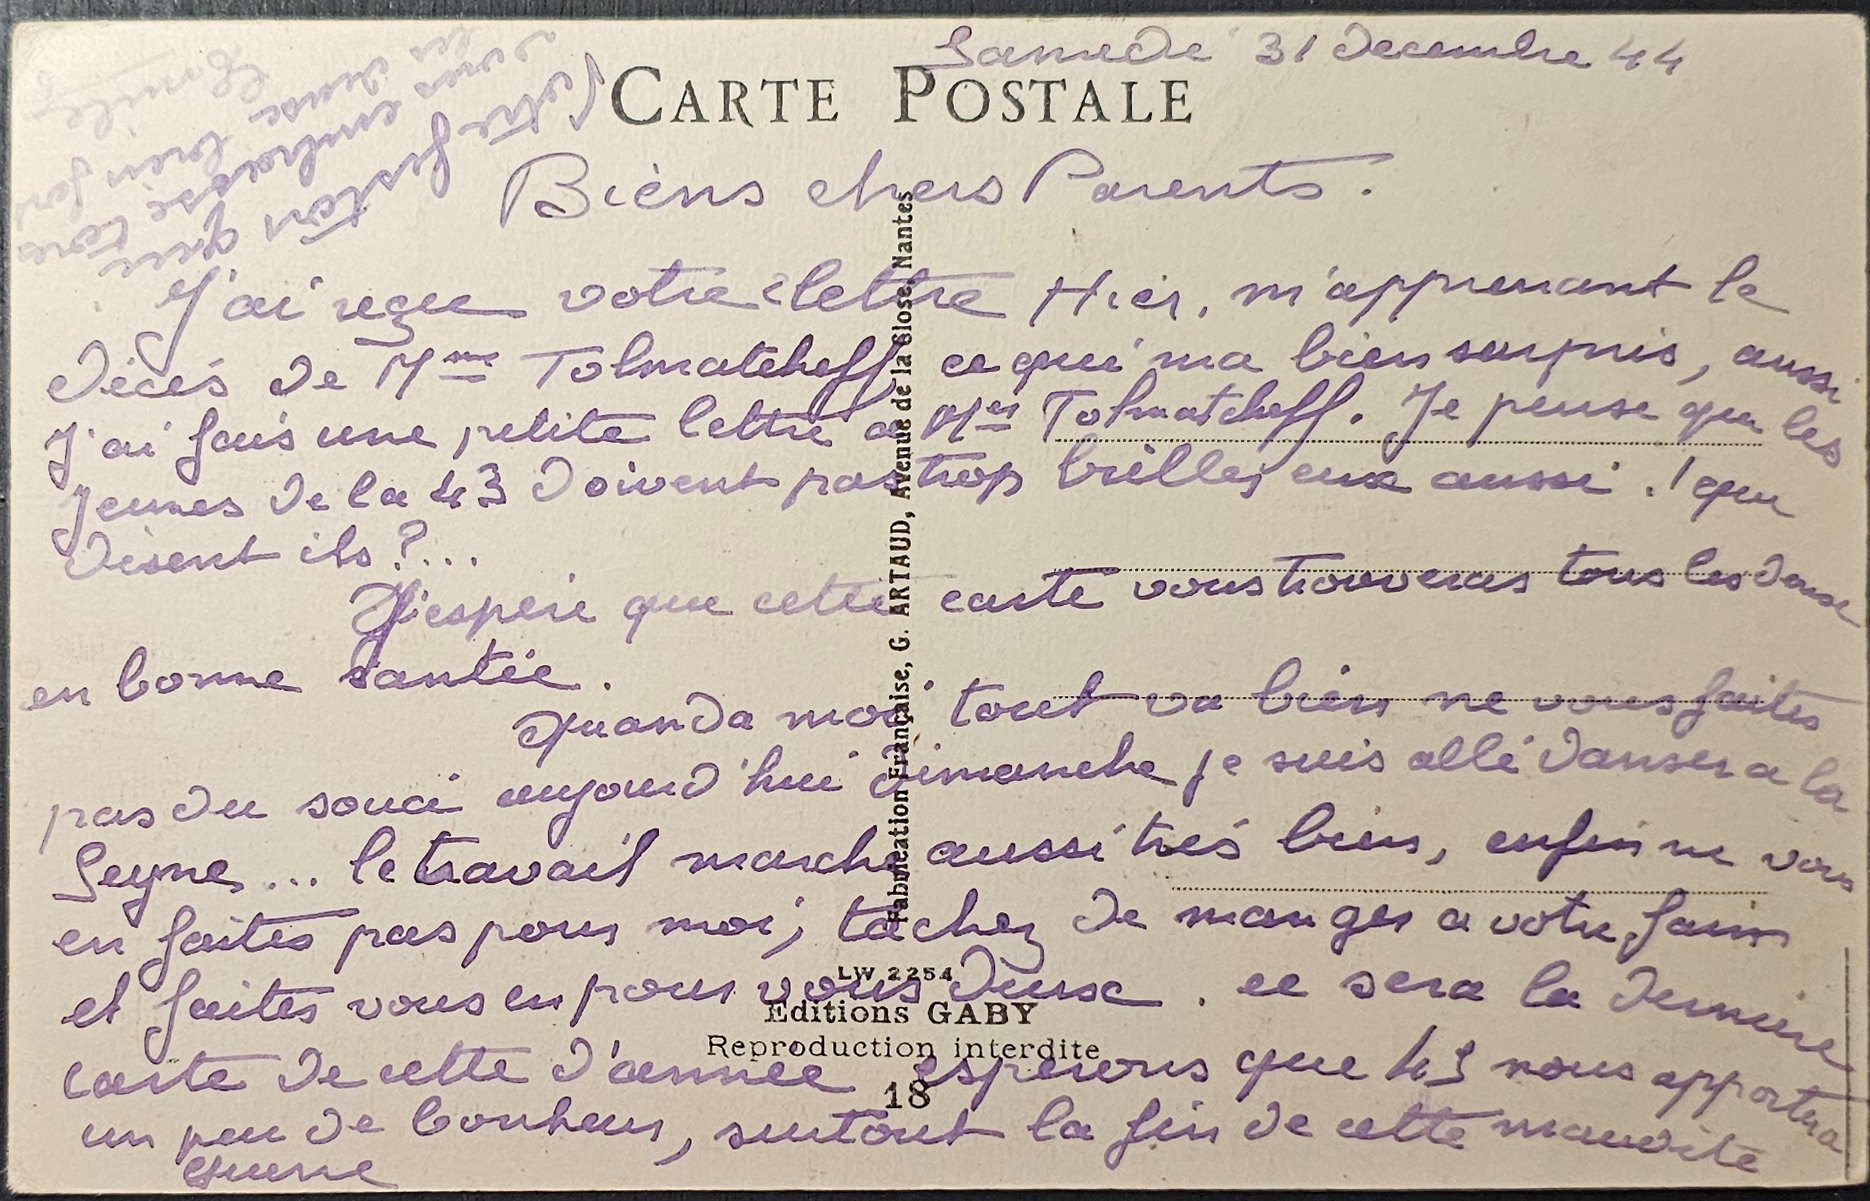 Samedi 31 Decembre 44
CARTE POSTALE
Biens chers Parents.
J'ai reçue votre lettre Hier, m'apprenant le
décès de Mme Tolmatcheff ce qui ma bien surpris, aussi
J'ai fais une petite lettre a Mer Tolmatcheff. Je pense que les
jeunes de la 43 doivent pas trop briller eux aussi .! que
disent ils ?...
J'espère que cette carte vous trouveras tous les deux
en bonne santée.
Quand a moi tout va bien ne vous faites
pas du souci aujourd'hui dimanche je suis allé danser a la
Seyne, ... le travail marche aussi très bien, enfin ne vous
en faites pas pour moi, tachez de manger a votre faim
et faites vous en pour vous deux. ce sera la derniere
carte de cette d'année esperons que 45 nous apportera
un peu de bonheur, surtout la fin de cette maudite
guerre
Votre fiston qui
vous embrasse bien fort
tous les deux
Fabrication Française, G. ARTAUD, Avenue de la Close, Nantes
LW 2254
Editions GABY
Reproduction interdite
18